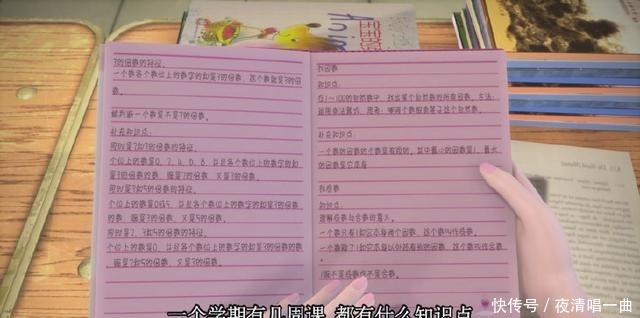 3的倍数的特征。
一个数各个数位上的数字的和是3的倍数，这个数就是3的倍
数。
能判断一个数是不是3的倍数。
补充知识点：
同时是2和3的倍数的特征。
个位上的数是0、2、4、6、8，并且各个数位上的数字的和
是3的倍数的数，既是2的倍数，又是3的倍数。
同时是3和5的倍数的特征。
个位上的数是0或5，并且各个数位上的数字的和是3的倍数
的数，既是3的倍数，又是5的倍数。
同时是2、3和5的倍数的特征。
个位上的数是0，并且各个数位上的数字的和是3的倍数的数
，既是2和5的倍数，又是3的倍数。
找因数
知识点：
在1～100的自然数中，找出某个自然数的所有因数。方法：
运用乘法算式，思考：哪两个数相乘等于这个自然数。
补充知识点：
一个数的因数的个数是有限的。其中最小的因数是1，最大
的因数是它本身
找质数
知识点：
理解质数与合数的意义。
一个数只有1和它本身两个因数，这个数叫作质数。
一个数除了1和它本身以外还有别的因数，这个数叫作合数。
1既不是质数也不是合数。
一个学期有几周课 都有什么知识点
快传号／夜清唱一曲